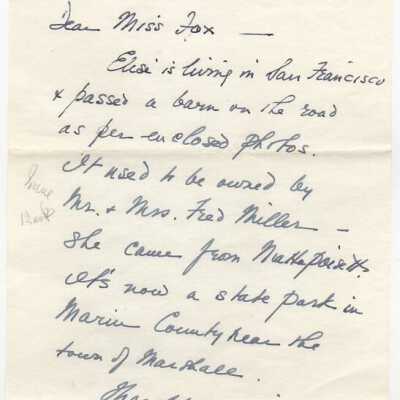 Dear Miss Fox —
Elise is living in San Francisco
& passed a barn on the road
as per enclosed photos.
It used to be owned by
Mr. & Mrs. Fred Miller —
She came from Mattapoisett.
It's now a state park in
Marin County near the
town of Marshall.